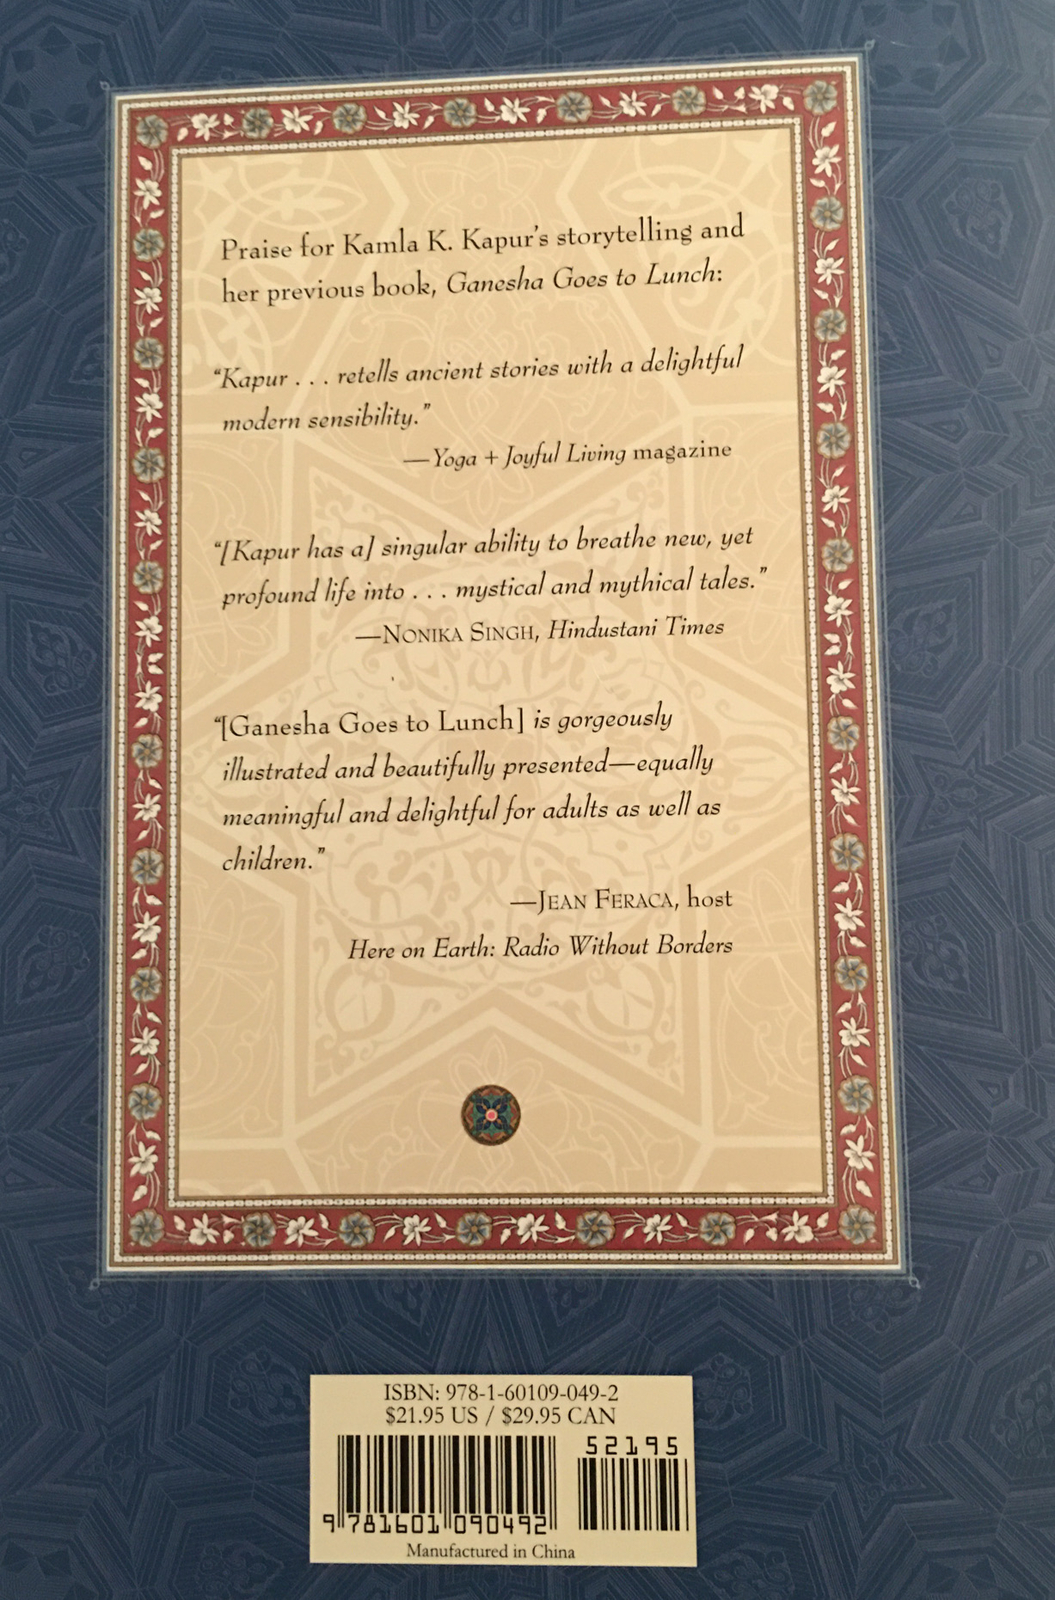 Praise for Kamla K. Kapur's storytelling and
her previous book, Ganesha Goes to Lunch:
“Kapur . . . retells ancient stories with a delightful
modern sensibility.”
—Yoga + Joyful Living magazine
“[Kapur has a] singular ability to breathe new, yet
profound life into . . . mystical and mythical tales.”
—NONIKA SINGH, Hindustani Times
“[Ganesha Goes to Lunch] is gorgeously
illustrated and beautifully presented—equally
meaningful and delightful for adults as well as
children.”
—JEAN FERACA, host
Here on Earth: Radio Without Borders
ISBN: 978-1-60109-049-2
$21.95 US / $29.95 CAN
52195
9 781601 090492
Manufactured in China